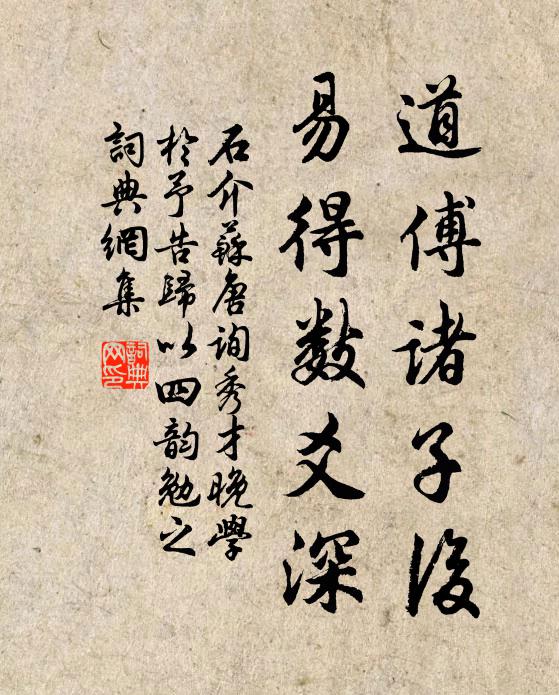 道傅諸子後
易得数爻深
石介蘇唐詢秀才晚學
於予告歸以四韵勉之
詞典網集
詞典
网印